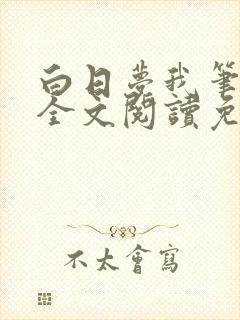 白日夢我筆
全文閱讀免
不太會寫